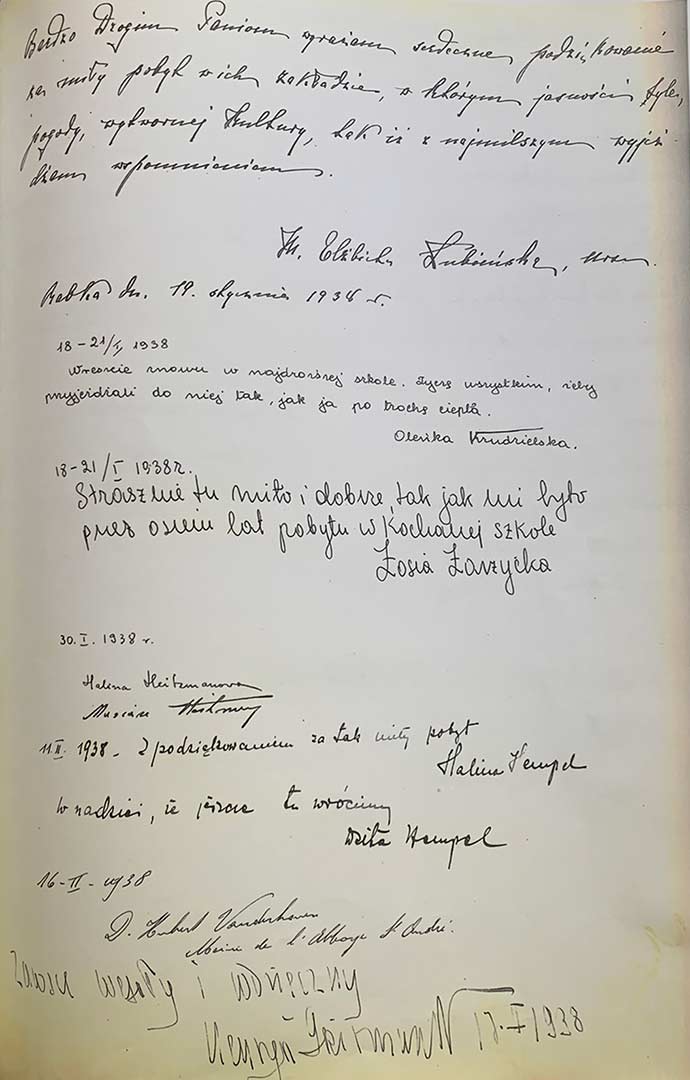 Bardzo Drogim Paniom wyrażam serdeczne podziękowanie
za miły pobyt w ich zakładzie, w którym jasności tyle,
pogody, wytwornej kultury, tak iż z najmilszym wyjeż-
dżam wspomnieniem.
M. Elżbieta Łubieńska,
Rabka dn. 19. stycznia 1938 r.
18-21/I 1938
Wreszcie znowu w najdroższej szkole. Życzę wszystkim, żeby
przyjeżdżali do niej tak, jak ja po trochę ciepła.
Oleńka Krudzielska.
18-21/I 1938r.
Strasznie tu miło i dobrze, tak jak mi było
przez osiem lat pobytu w kochanej szkole
Zosia Zarzycka
30.I.1938 r.
Halina Heitzmanowa
Marian
11.II.1938 - Z podziękowaniem za tak miły pobyt
Halina Hempel
W nadziei, że jeszcze tu wrócimy
Hempel
16-II-1938
D. Hubert Vanderhoven
Moine de l'Abbaye St André.
Zawsze wesoły i wdzięczny
Henryk 1938